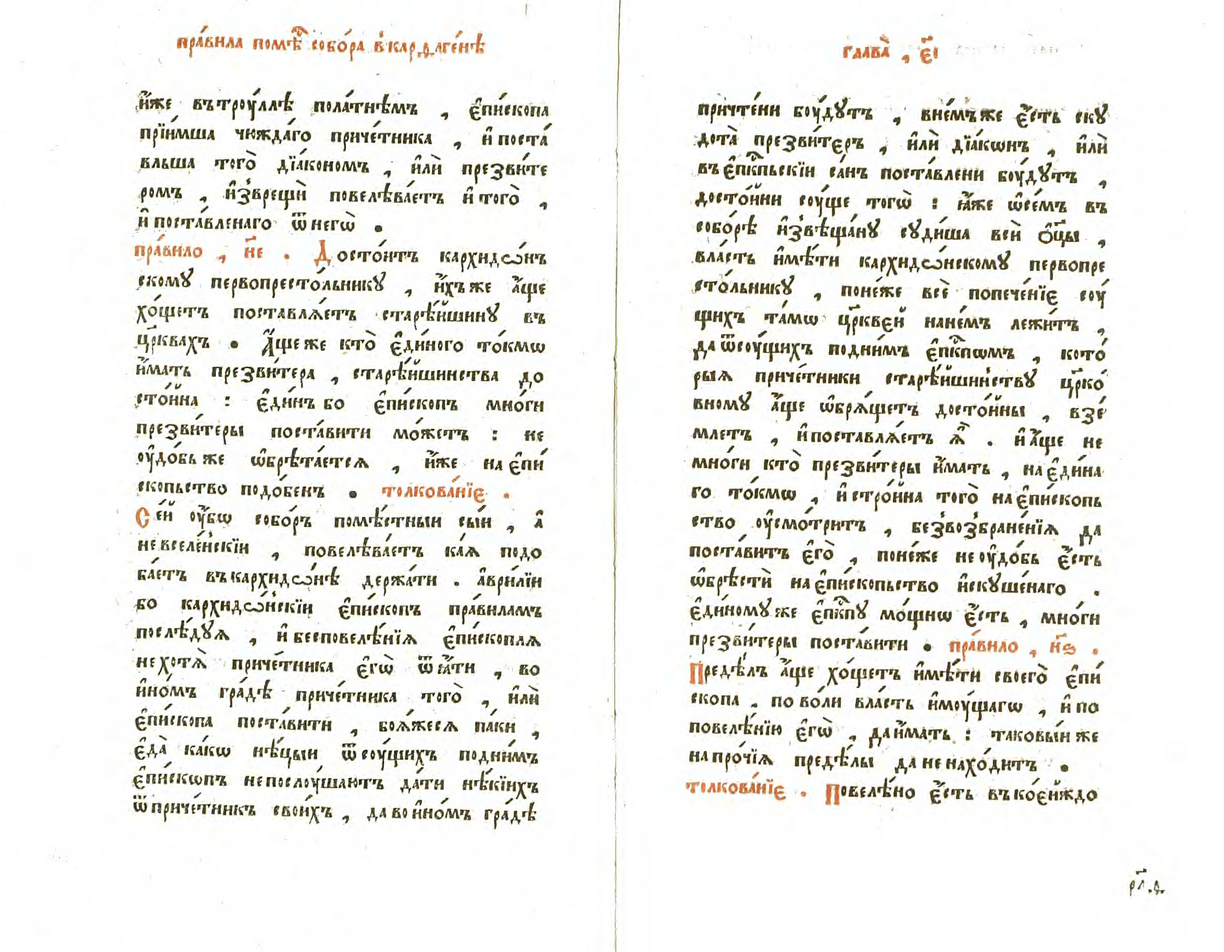 пра́вила помѣ́с собо́ра в҆кардаге́нѣ
и҆́же въ трꙋ́ллѣ пола́тнѣмъ , є҆пи́скопа
прїи́мша чюжда́го приче́тника , и҆ поста́
вльша того̀ дїа́кономъ , и҆лѝ презви́те
ромъ , и҆зврещѝ повелѣва́етъ и҆ того̀ ,
и҆ поста́вленаго ѿ негѡ̀ .
пра́вило , н҃е . Досто́итъ кархидѡ́нъ
скомꙋ первопресто́льникꙋ , и҆́хъ же а҆́ще
хо́щетъ поставлѧ́етъ старѣ́йшинꙋ въ
цр҃квахъ . А҆́ще же кто̀ є҆ди́ного то́кмѡ
и҆́мать презви́тера , старѣ́йшинства до
сто́йна : є҆ди́нъ бо є҆пи́скопъ мно́ги
презви́теры поста́вити мо́жетъ : не
ᲂу҆до́бь же ѡ҆брѣта́етсѧ , и҆́же на є҆пи́
скопьство подо́бенъ . толкова́нїе .
Се́й ᲂу҆́бѡ собо́ръ помѣ́стныи сы́и , а҆
не вселе́нскїи , повелѣва́етъ ка́ѧ подо
ба́етъ въ кархидѡ́нѣ держа́ти . а҆врилїи
бо кархидѡ́нскїи є҆пи́скопъ пра́виламъ
послѣ́дꙋѧ , и҆ бесповелѣ́нїѧ є҆пи́скоплѧ
не хотѧ̀ приче́тника є҆гѡ̀ ѿꙗ́ти , во
и҆но́мъ гра́дѣ приче́тника того̀ , и҆лѝ
є҆пи́скопа поста́вити , боѧ́жесѧ па́ки ,
є҆да̀ ка́кѡ нѣ́цыи ѿ сꙋ́щихъ под ни́мъ
є҆пи́скѡпъ не послꙋ́шаютъ да́ти нѣ́кїихъ
ѿ приче́тникъ свои́хъ , да во и҆но́мъ гра́дѣ
глава̀ , є҃і
причте́ни бꙋ́дꙋтъ , в не́мъ же є҆́сть скꙋ
дота̀ презви́теръ , и҆лѝ дїа́кѡнъ , и҆лѝ
въ є҆пкⷭ҇пьскїи са́нъ поставлени бꙋ́дꙋтъ ,
досто́йни сꙋ́ще тогѡ̀ : ꙗ҆́же ѡ҆ се́мъ въ
собо́рѣ и҆звѣ́щанꙋ сꙋди́ша всѝ ѻ҆ц҃ы ,
вла́сть и҆мѣ́ти кархидѡ́нскомꙋ первопре
сто́льникꙋ , поне́же всѐ попече́нїе сꙋ́
щихъ та́мѡ цр҃квей на не́мъ лежи́тъ ,
да ѿ сꙋ́щихъ под ни́мъ є҆пкⷭ҇пѡмъ , кото́
рыѧ приче́тники старѣ́йшинствꙋ цр҃ко́
вномꙋ а҆́ще ѡ҆брѧ́щетъ досто́йны , взе́
млетъ , и҆ поставлѧ́етъ ѧ҆̀ . и҆ а҆́ще не
мно́ги кто̀ презви́теры и҆́мать , на є҆ди́на
го то́кмѡ , и҆ стро́йна того̀ на є҆пи́скопь
ство ᲂу҆смо́тритъ , безвозбране́нїѧ да
поста́витъ є҆го̀ , поне́же не ᲂу҆до́бь є҆́сть
ѡ҆брѣстѝ на є҆пи́скопьство и҆скꙋше́наго .
є҆ди́номꙋ же є҆пкⷭ҇пꙋ мо́щнѡ є҆́сть , мно́ги
презви́теры поста́вити . пра́вило , н҃ѕ .
Предѣ́лъ а҆́ще хо́щетъ и҆мѣ́ти своего̀ є҆пи́
скопа , по во́ли вла́сть и҆мꙋ́щагѡ , и҆ по
повелѣ́нїю є҆гѡ̀ , да и҆́мать : таковы́и же
на про́чїѧ предѣ́лы да не нахо́дитъ .
толкова́нїе . Повелѣ́но є҆́сть въ кое́йждо
рл҃.ѳ.